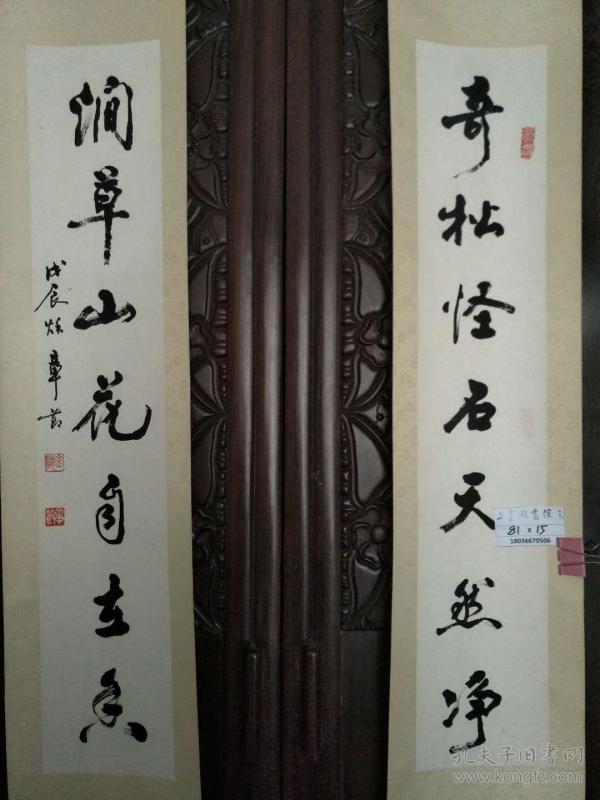 奇松怪石天然净
涧草山花自在香
戊辰秋章
81 x 15
18036670506
孔夫子旧书网
www.kongfz.com